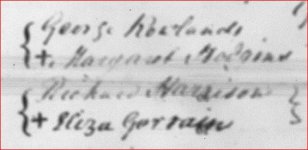 George Rowlands
+ Margaret Hodgins
Richard Harrison
+ Eliza Gorrain